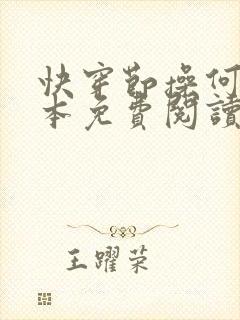 快穿節操何
本免費閱讀
王躍荣